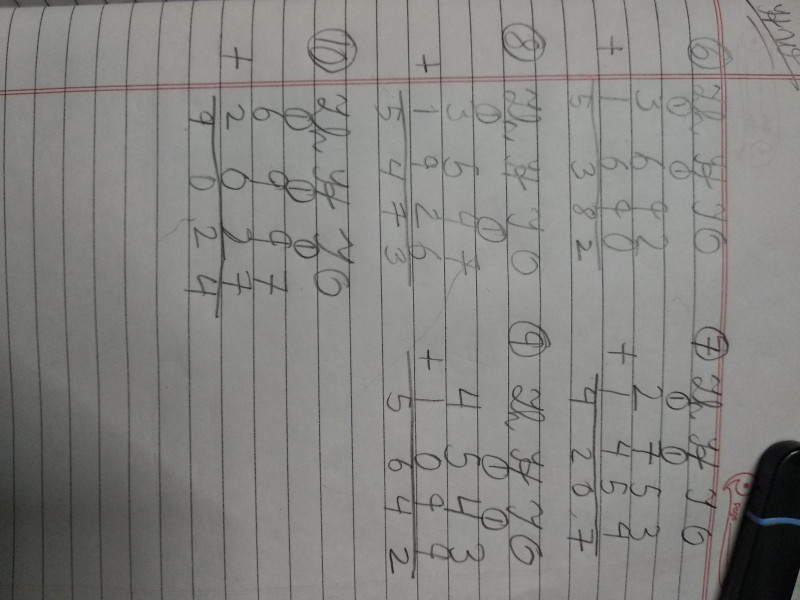 6 Th H T O
1 1
3 6 9 2
+ 1 6 9 0
5 3 8 2
7 Th H T O
1 1
2 7 5 3
+ 1 4 5 4
4 2 0 7
8 Th H T O
1 1
3 5 4 7
+ 1 9 2 6
5 4 7 3
9 Th H T O
1 1
4 5 4 3
+ 1 0 9 9
5 6 4 2
10 Th H T O
1 1 1
6 9 9 7
+ 2 0 2 7
9 0 2 4